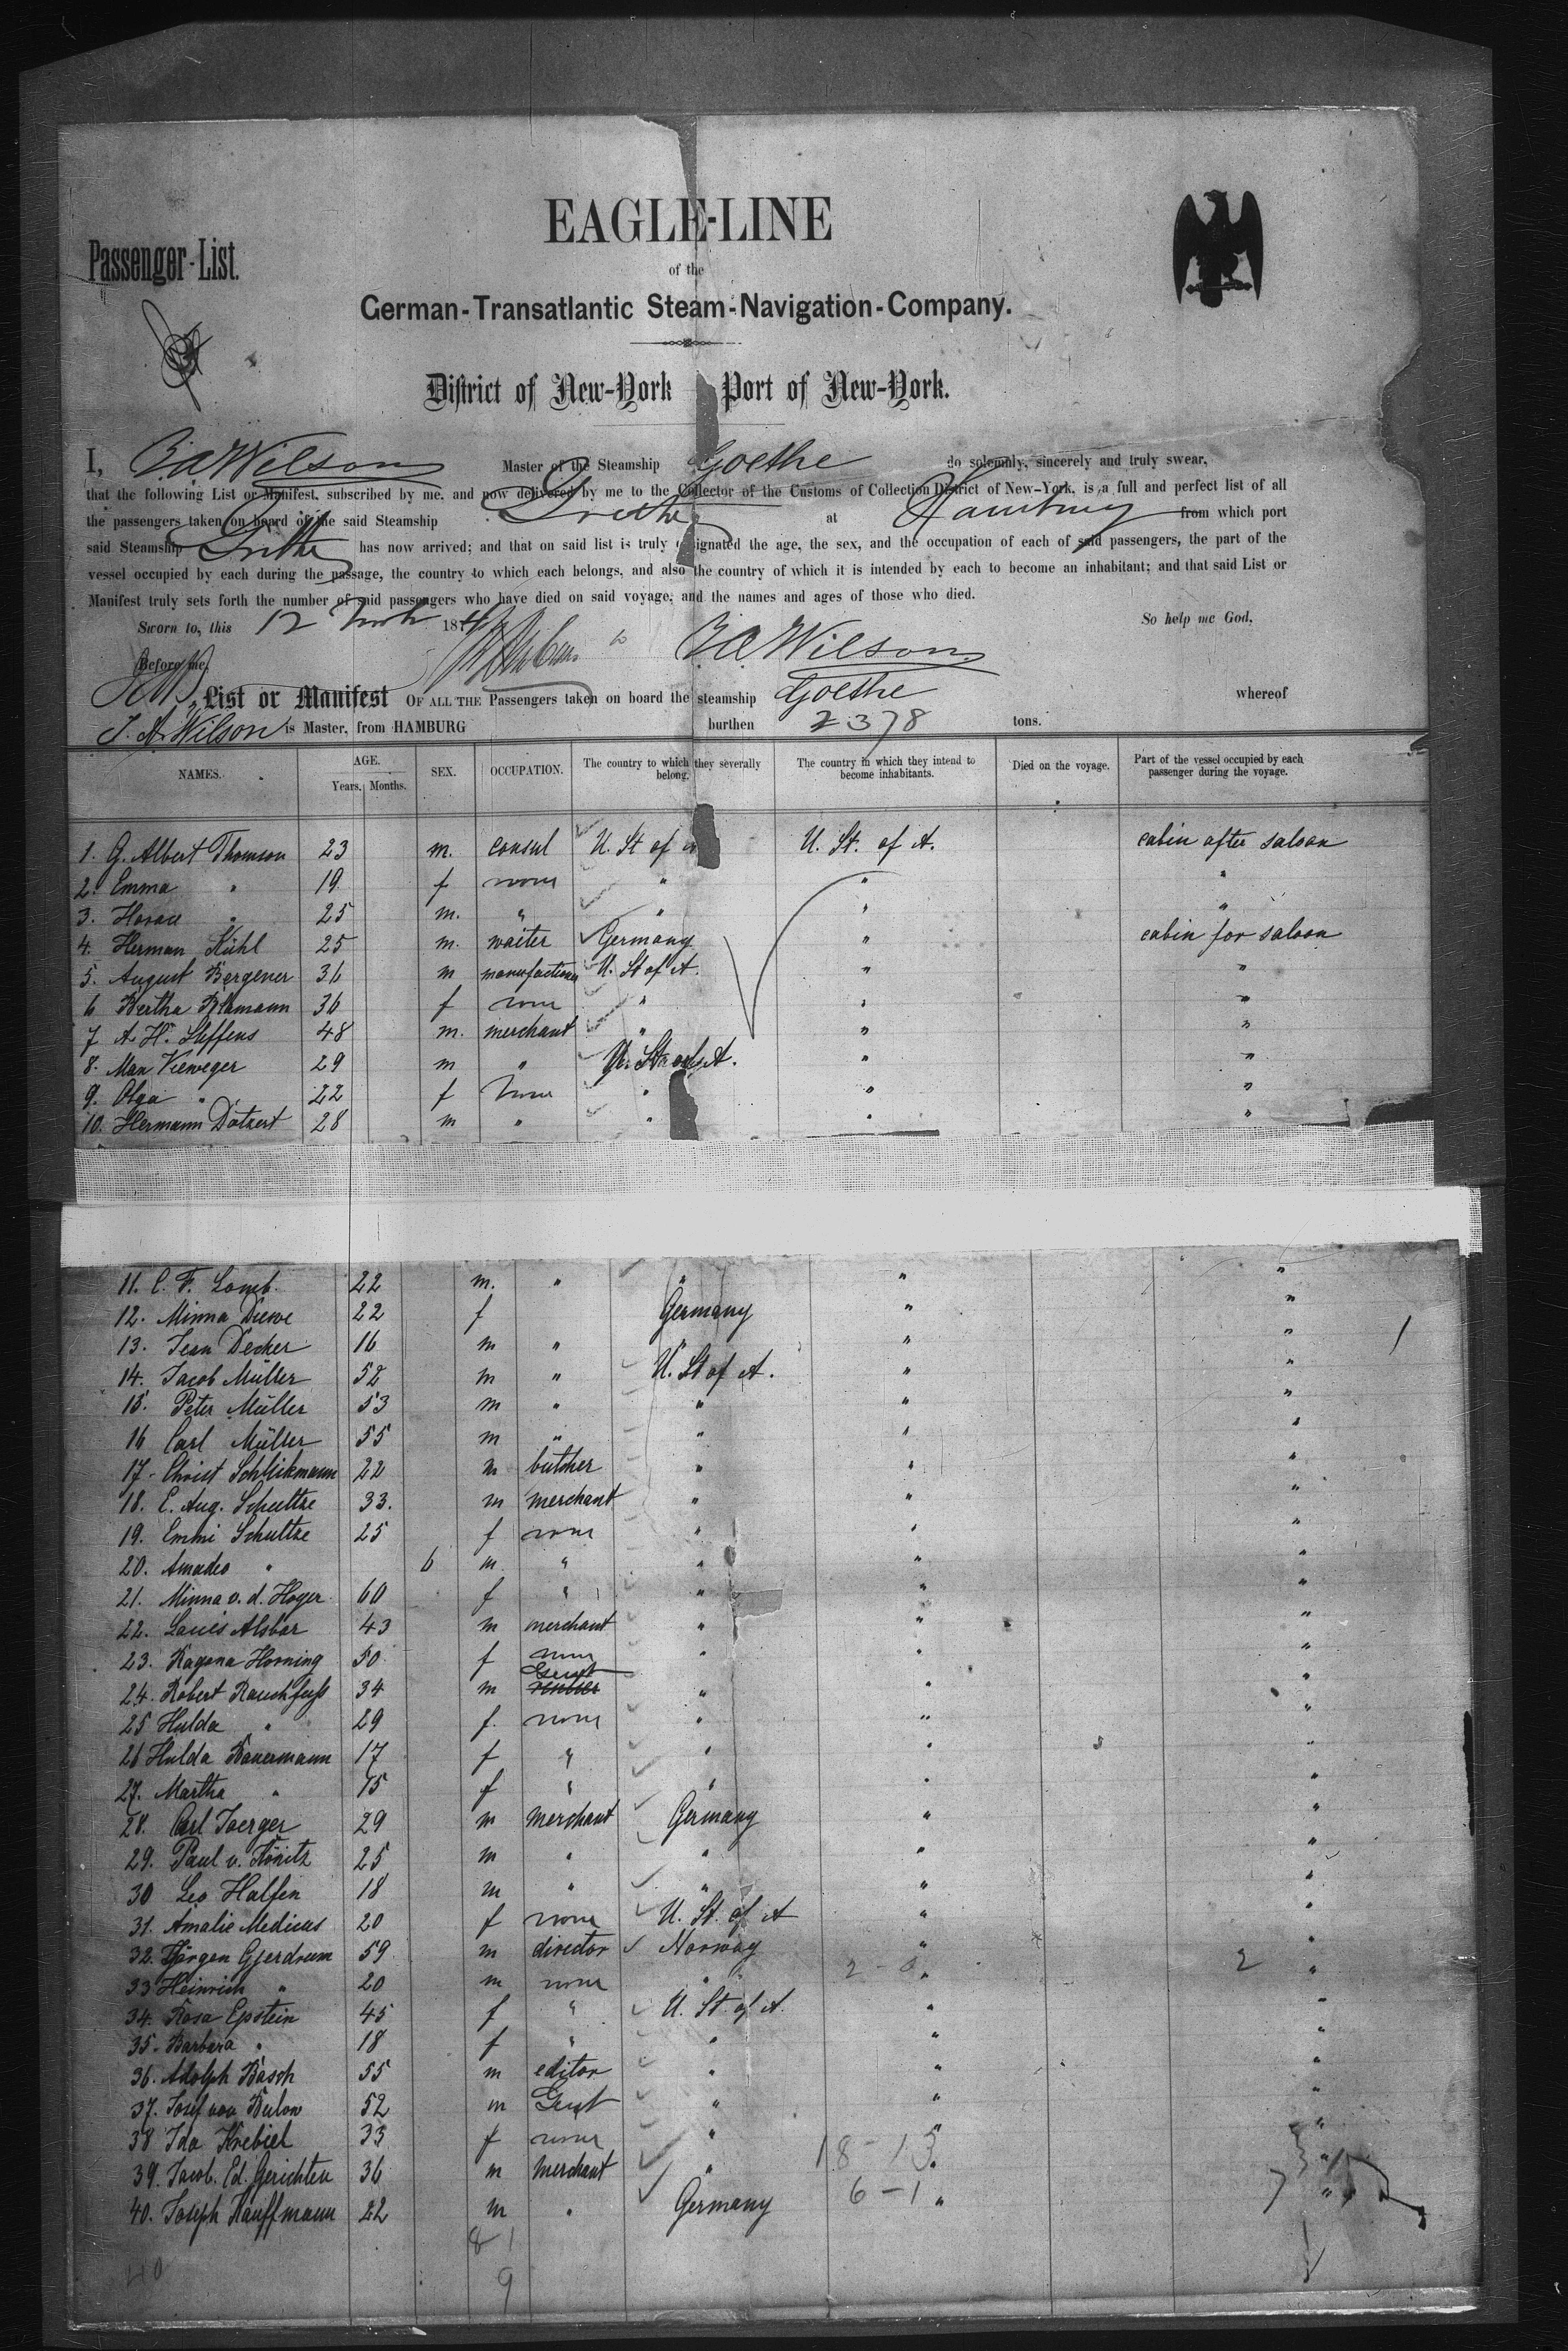 EAGLE-LINE
Passenger-List.
of the
German-Transatlantic Steam-Navigation-Company.
District of New-York Port of New-York.
I, Wilson Master of the Steamship Goethe do solemnly, sincerely and truly swear,
that the following List or Manifest, subscribed by me, and now delivered by me to the Collector of the Customs of Collection District of New-York, is a full and perfect list of all
the passengers taken on board of the said Steamship Goethe at Hamburg from which port
said Steamship Goethe has now arrived; and that on said list is truly designated the age, the sex, and the occupation of each of said passengers, the part of the
vessel occupied by each during the passage, the country to which each belongs, and also the country of which it is intended by each to become an inhabitant; and that said List or
Manifest truly sets forth the number of said passengers who have died on said voyage, and the names and ages of those who died.
Sworn to, this 12 187 So help me God,
Before me, Wilson
List or Manifest OF ALL THE Passengers taken on board the steamship Goethe whereof
J. A. Wilson is Master, from HAMBURG burthen 2378 tons.
NAMES. AGE. Years. Months. SEX. OCCUPATION. The country to which they severally belong. The country in which they intend to become inhabitants. Died on the voyage. Part of the vessel occupied by each passenger during the voyage.
1. G. Albert Thomson 23 m. consul U. St of A U. St. of A. cabin after saloon
2. Emma " 19 f none " " "
3. Horace " 25 m. " " " "
4. Herman Kühl 25 m. waiter Germany " cabin for saloon
5. August Bergener 36 m U. St of A. " "
6 Bertha 36 f none " " "
7 A. H. Steffens 48 m. merchant " " "
8. Max Vieweger 29 m " U. St of A. " "
9. Olga " 22 f none " " "
10. Hermann Dotzert 28 m " " " "
11. C. F. Lomb. 22 m. " " " "
12. Minna Diewe 22 f Germany " "
13. Jean Decker 16 m " " " " 1
14. Jacob Müller 52 m " U. St of A. " "
15. Peter Müller 53 m " " " "
16 Carl Müller 55 m " " " "
17. Christ Schlickmann 22 m butcher " " "
18. E. Aug. Schultze 33. m merchant " " "
19. Emmi Schultze 25 f none " " "
20. Amadeo " 6 m " " " "
21. Minna v. d. Hoger 60 f " " " "
22. Louis Alsbar 43 m merchant " " "
23. Ragona Horning 50 f none " " "
24. Robert Rauchfuß 34 m Gent " " "
25 Hulda " 29 f. none " " "
26 Hulda Bauermann 17 f " " " "
27. Martha " 15 f " " " "
28. Carl Joerger 29 m merchant Germany " "
29. Paul v. Könitz 25 m " " " "
30 Leo Halfen 18 m " " " "
31. Amalie Medicus 20 f none U. St. of A " "
32. Jörgen Gjerdrum 59 m director Norway " "
33 Heinrich " 20 m none " 2 - 0 " 2 "
34. Rosa Epstein 45 f " U. St. of A. " "
35. Barbara " 18 f " " " "
36. Adolph Basch 55 m editor " " "
37. Josef von Bulow 52 m Gent " " "
38 Ida Krebiel 33 f none " " "
39. Jacob. Ed. Gerichten 36 m merchant " 18 - 13 " "
40. Joseph Kauffmann 22 m " Germany 6 - 1 " 7 "
40 81
9